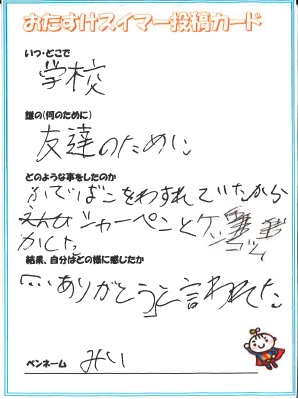 おたすけスイマー投稿カード
いつ・どこで
学校
誰の(何のために)
友達のために
どのような事をしたのか
ふでばこをわすれていたから
シャーペンとケシゴム
かした。
結果、自分はどの様に感じたか
「…ありがとう」と言われた。
ペンネーム みい